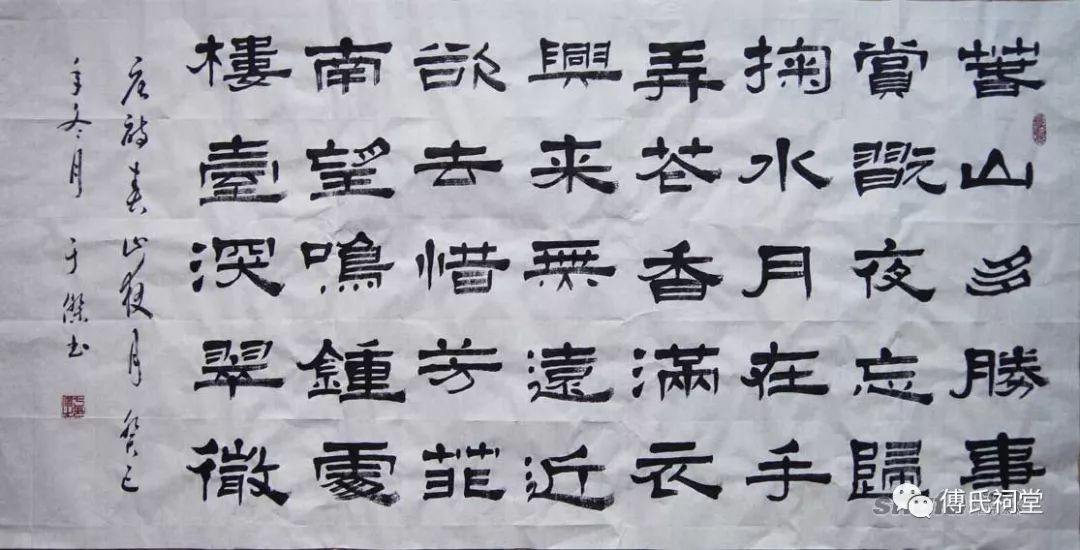 萅山多勝事
賞翫夜忘歸
掬水月在手
弄花香滿衣
興来無遠近
欲去惜芳菲
南望鳴鍾處
樓臺深翠微
唐詩春山夜月 癸巳
年冬月 于傑书
傅氏祠堂